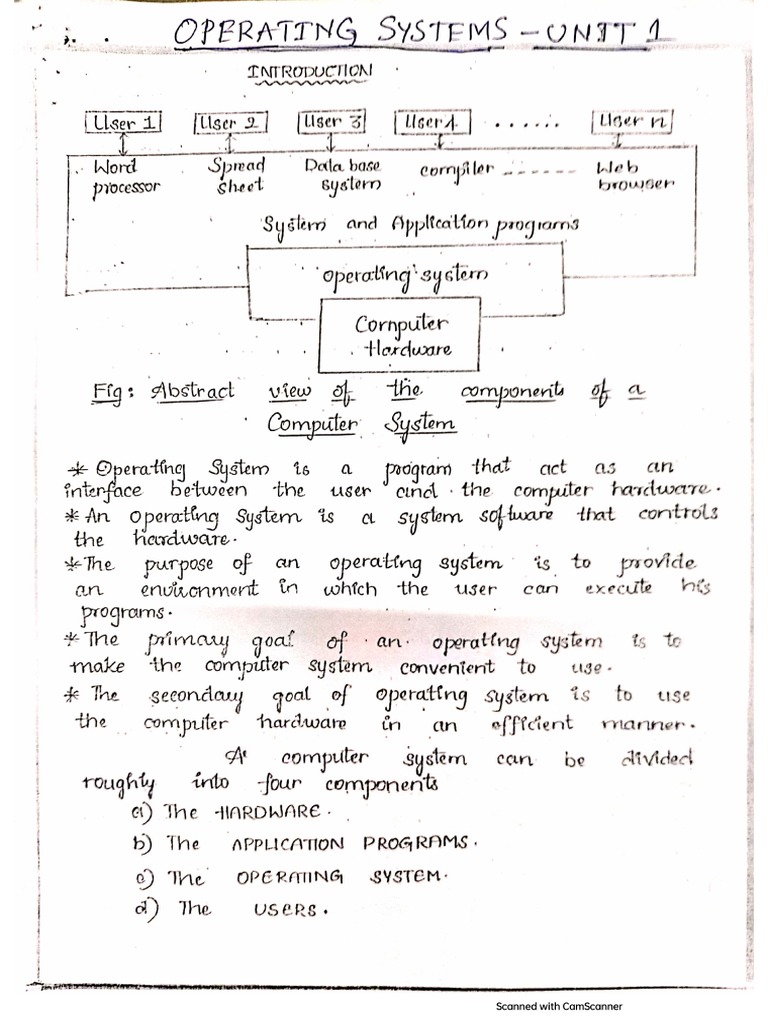 OPERATING SYSTEMS - UNIT 1
INTRODUCTION
User 1 User 2 User 3 User 4 ...... User n
Word Spread Data base compiler ------- Web
processor sheet system browser
System and Application programs
operating system
Computer
Hardware
Fig: Abstract view of the components of a
Computer System
* Operating System is a program that act as an
interface between the user and the computer hardware.
* An operating System is a system software that controls
the hardware.
* The purpose of an operating system is to provide
an environment in which the user can execute his
programs.
* The primary goal of an operating system is to
make the computer system convenient to use.
* The secondary goal of operating system is to use
the computer hardware in an efficient manner.
A computer system can be divided
roughty into four components
a) The HARDWARE.
b) The APPLICATION PROGRAMS.
c) The OPERATING SYSTEM.
d) The USERS.
Scanned with CamScanner